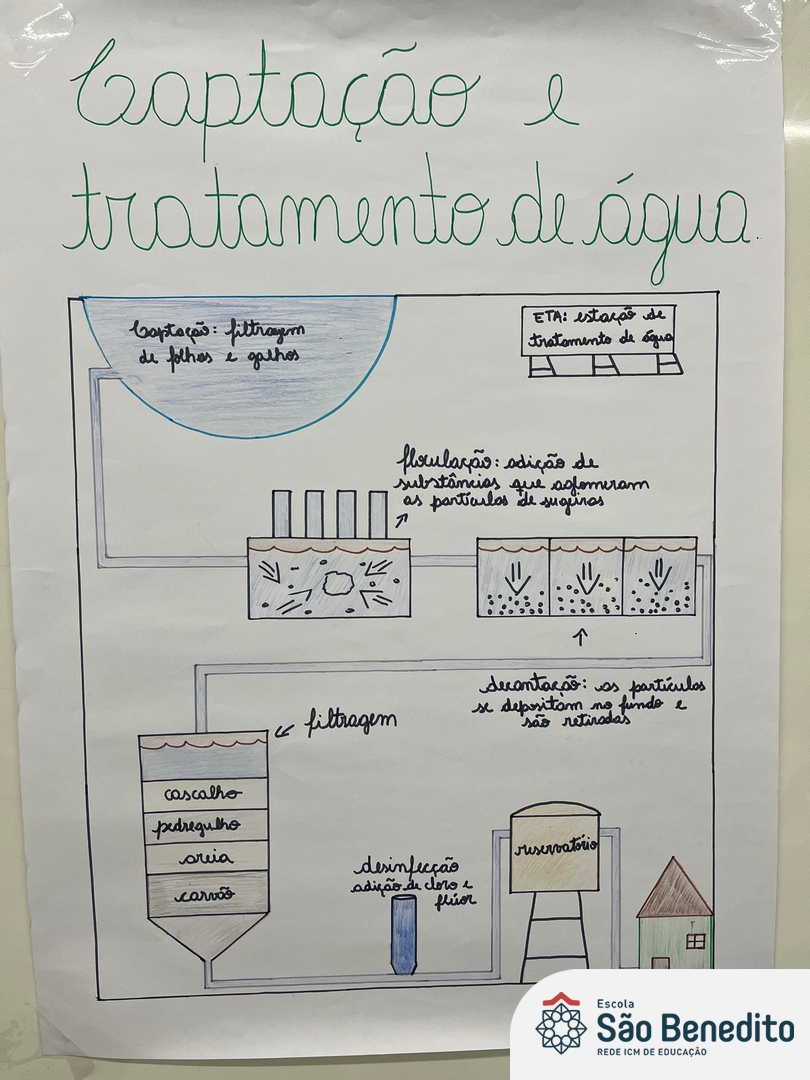 Captação e
tratamento de água.
Captação: filtragem
de folhos e galhos
ETA: estação de
tratamento de água
floculação: adição de
substâncias que aglomeram
as partículas de sugeiras
decantação: as partículas
se depositam no fundo e
são retiradas
filtragem
cascalho
pedregulho
areia
carvão
desinfecção
adição de cloro e
flúor
reservatório
Escola
São Benedito
REDE ICM DE EDUCAÇÃO